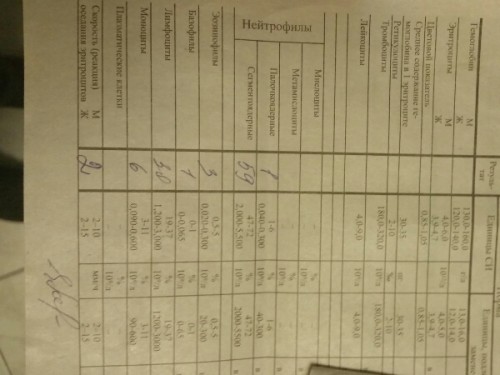 Резуль-
тат
Единицы СИ
Гемоглобин М 130,0-160,0 г/л 13,0-16,0
Ж 120,0-140,0 12,0-14,0
Эритроциты М 4,0-5,0 10¹²/л 4,0-5,0
Ж 3,9-4,7 3,9-4,7
Цветовой показатель 0,85-1,05 0,85-1,05
Среднее содержание ге-
моглобина в 1 эритроците 30-35 пг 30-35
Ретикулоциты 2-10 ‰ 2-10
Тромбоциты 180,0-320,0 10⁹/л 180,0-320,0
Лейкоциты 4,0-9,0 10⁹/л 4,0-9,0
Нейтрофилы
Миелоциты % 10⁹/л
Метамиелоциты % 10⁹/л
Палочкоядерные 1 1-6 % 1-6
0,040-0,300 10⁹/л 40-300
Сегментоядерные 59 47-72 % 47-72
2,000-5,500 10⁹/л 2000-5500
Эозинофилы 3 0,5-5 % 0,5-5
0,020-0,300 10⁹/л 20-300
Базофилы 1 0-1 % 0-1
0-0,065 10⁹/л 0-65
Лимфоциты 30 19-37 % 19-37
1,200-3,000 10⁹/л 1200-3000
Моноциты 6 3-11 % 3-11
0,090-0,600 10⁹/л 90-600
Плазматические клетки % 10⁹/л
Скорость (реакция) М 2 2-10 мм/ч 2-10
оседания эритроцитов Ж 2-15 2-15